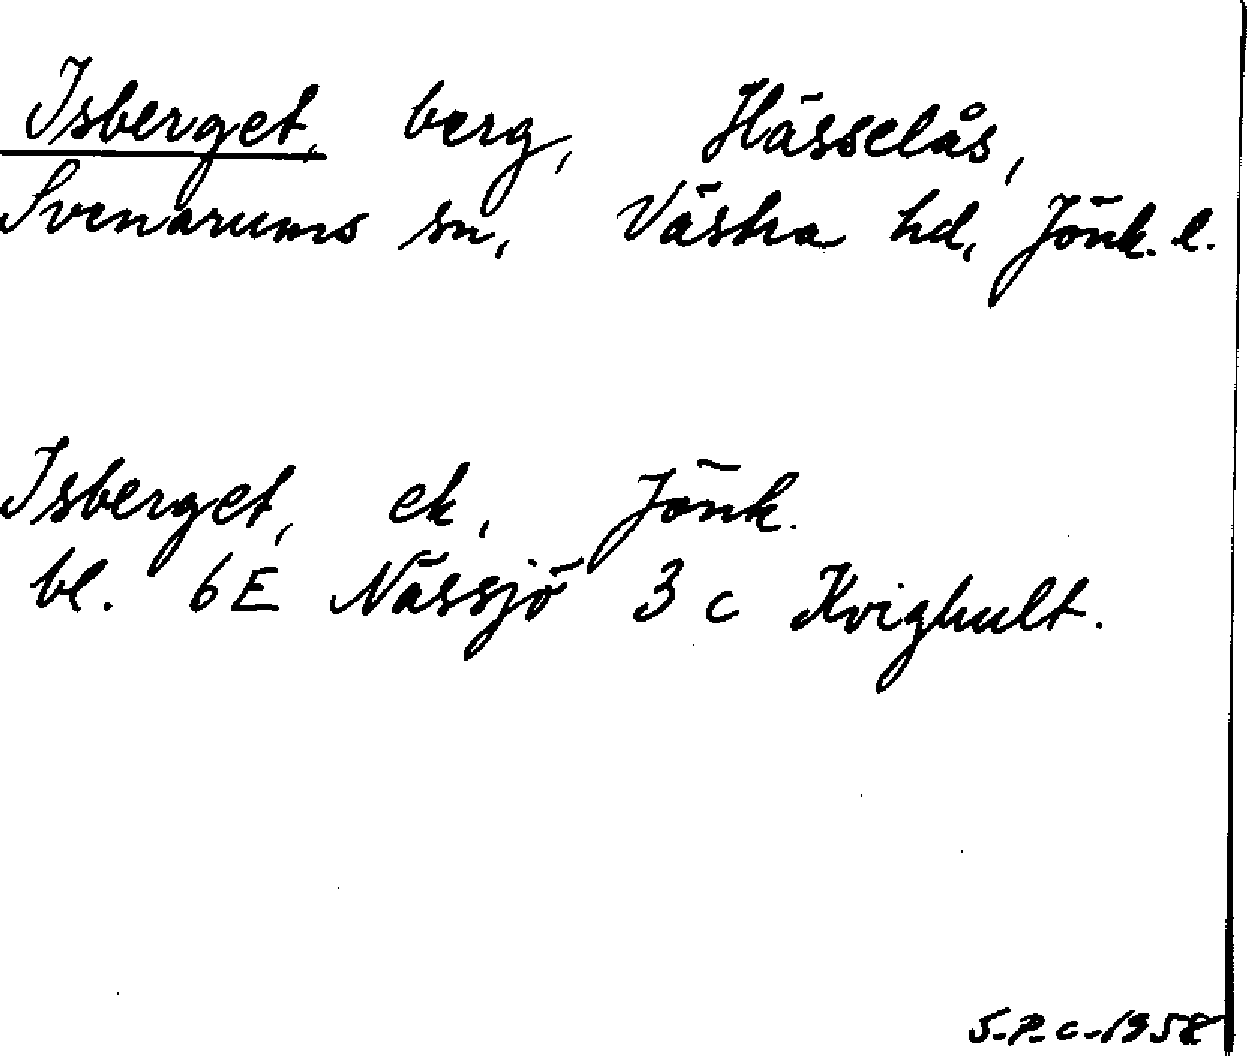 Isberget, berg, Hässelås,
Svenarums sn, Västra hd, Jönk. l.
Isberget, ek, Jönk.
bl. 6E Nässjö 3 c Kvighult.
S.P.C-1958